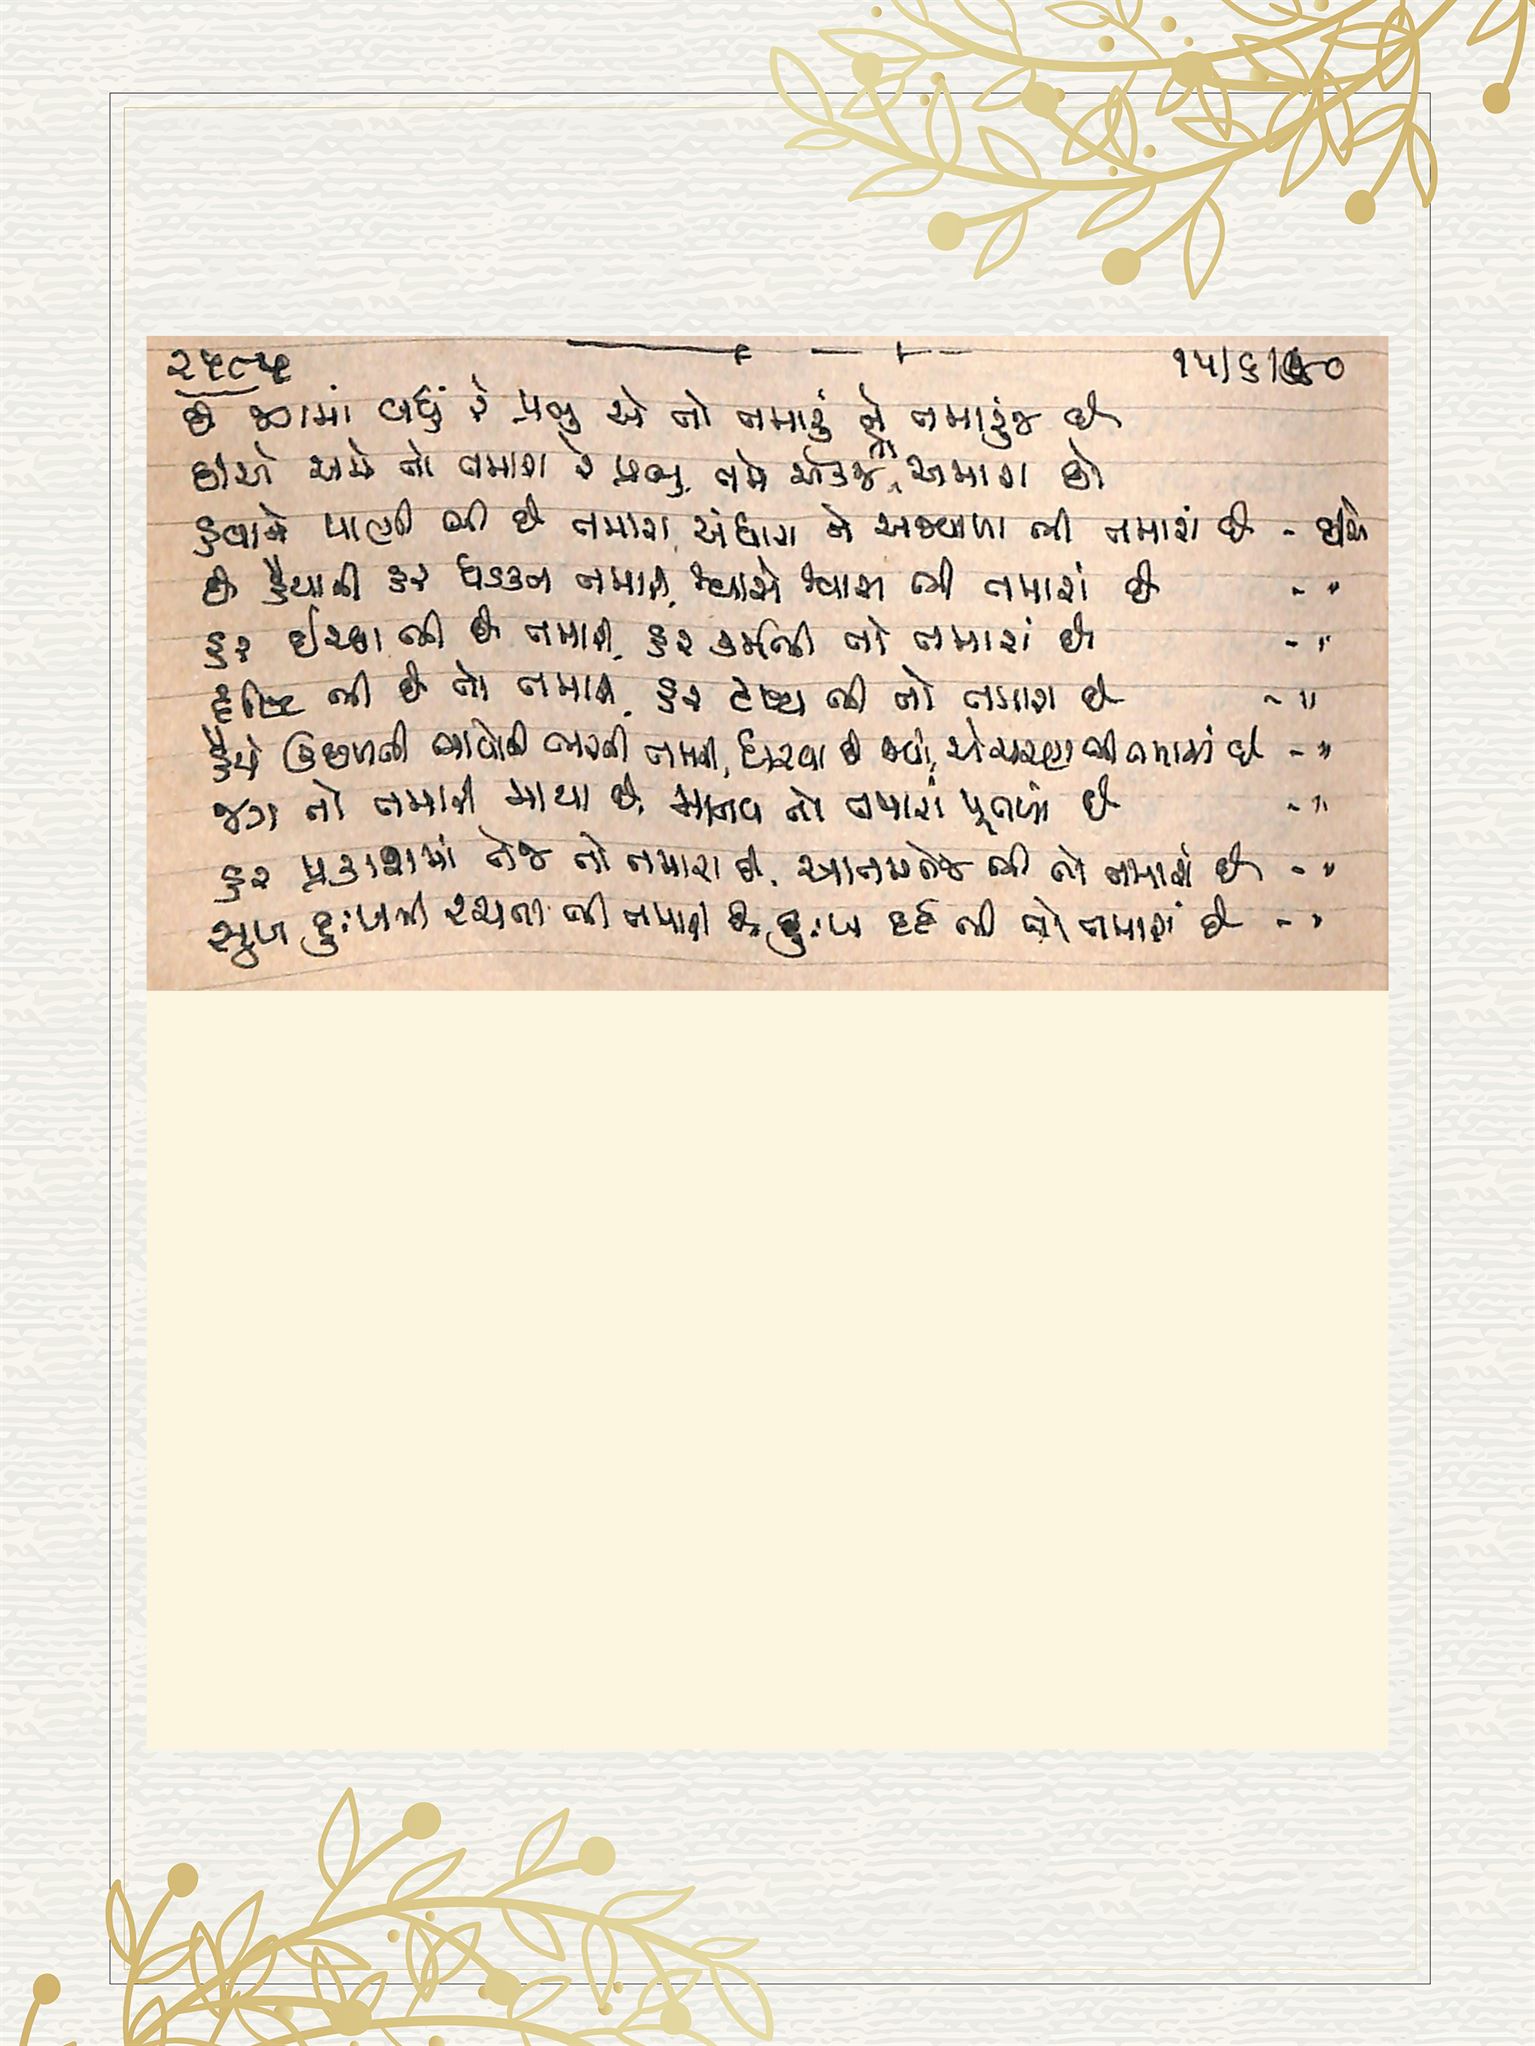 ૨૫૮૫ ૧૫/૬/૯૦
છે જગમાં બધું રે પ્રભુ એ તો તમારું ને તમારુંજ છે
છીએ અમે તો તમારા રે પ્રભુ, તમે એકજ તો અમારા છો
હવાને પાણી ભી છે તમારા, અંધારા ને અજવાળા ભી તમારાં છે - છીએ
છે હૈયાની હર ધડકન તમારી, શ્વાસે શ્વાસ ભી તમારાં છે - "
હર ઈચ્છા ભી છે તમારી, હર કર્મભી તો તમારાં છે - "
દૃષ્ટિ ભી છે તો તમારી, હર દૃશ્ય ભી તો તમારા છે - "
હૈયે ઊછળતી ભાવોની ભરતી તમારી, ધરવા છે જ્યાં, એ ચરણ ભી તમારાં છે - "
જગ તો તમારી માયા છે, માનવ તો તમારાં પૂતળાં છે - "
હર પ્રકાશમાં તેજ તો તમારા છે, આતમતેજ ભી તો તમારાં છે - "
સુખ દુઃખની રચના ભી તમારી છે, દુઃખ દર્દ ભી તો તમારાં છે - "